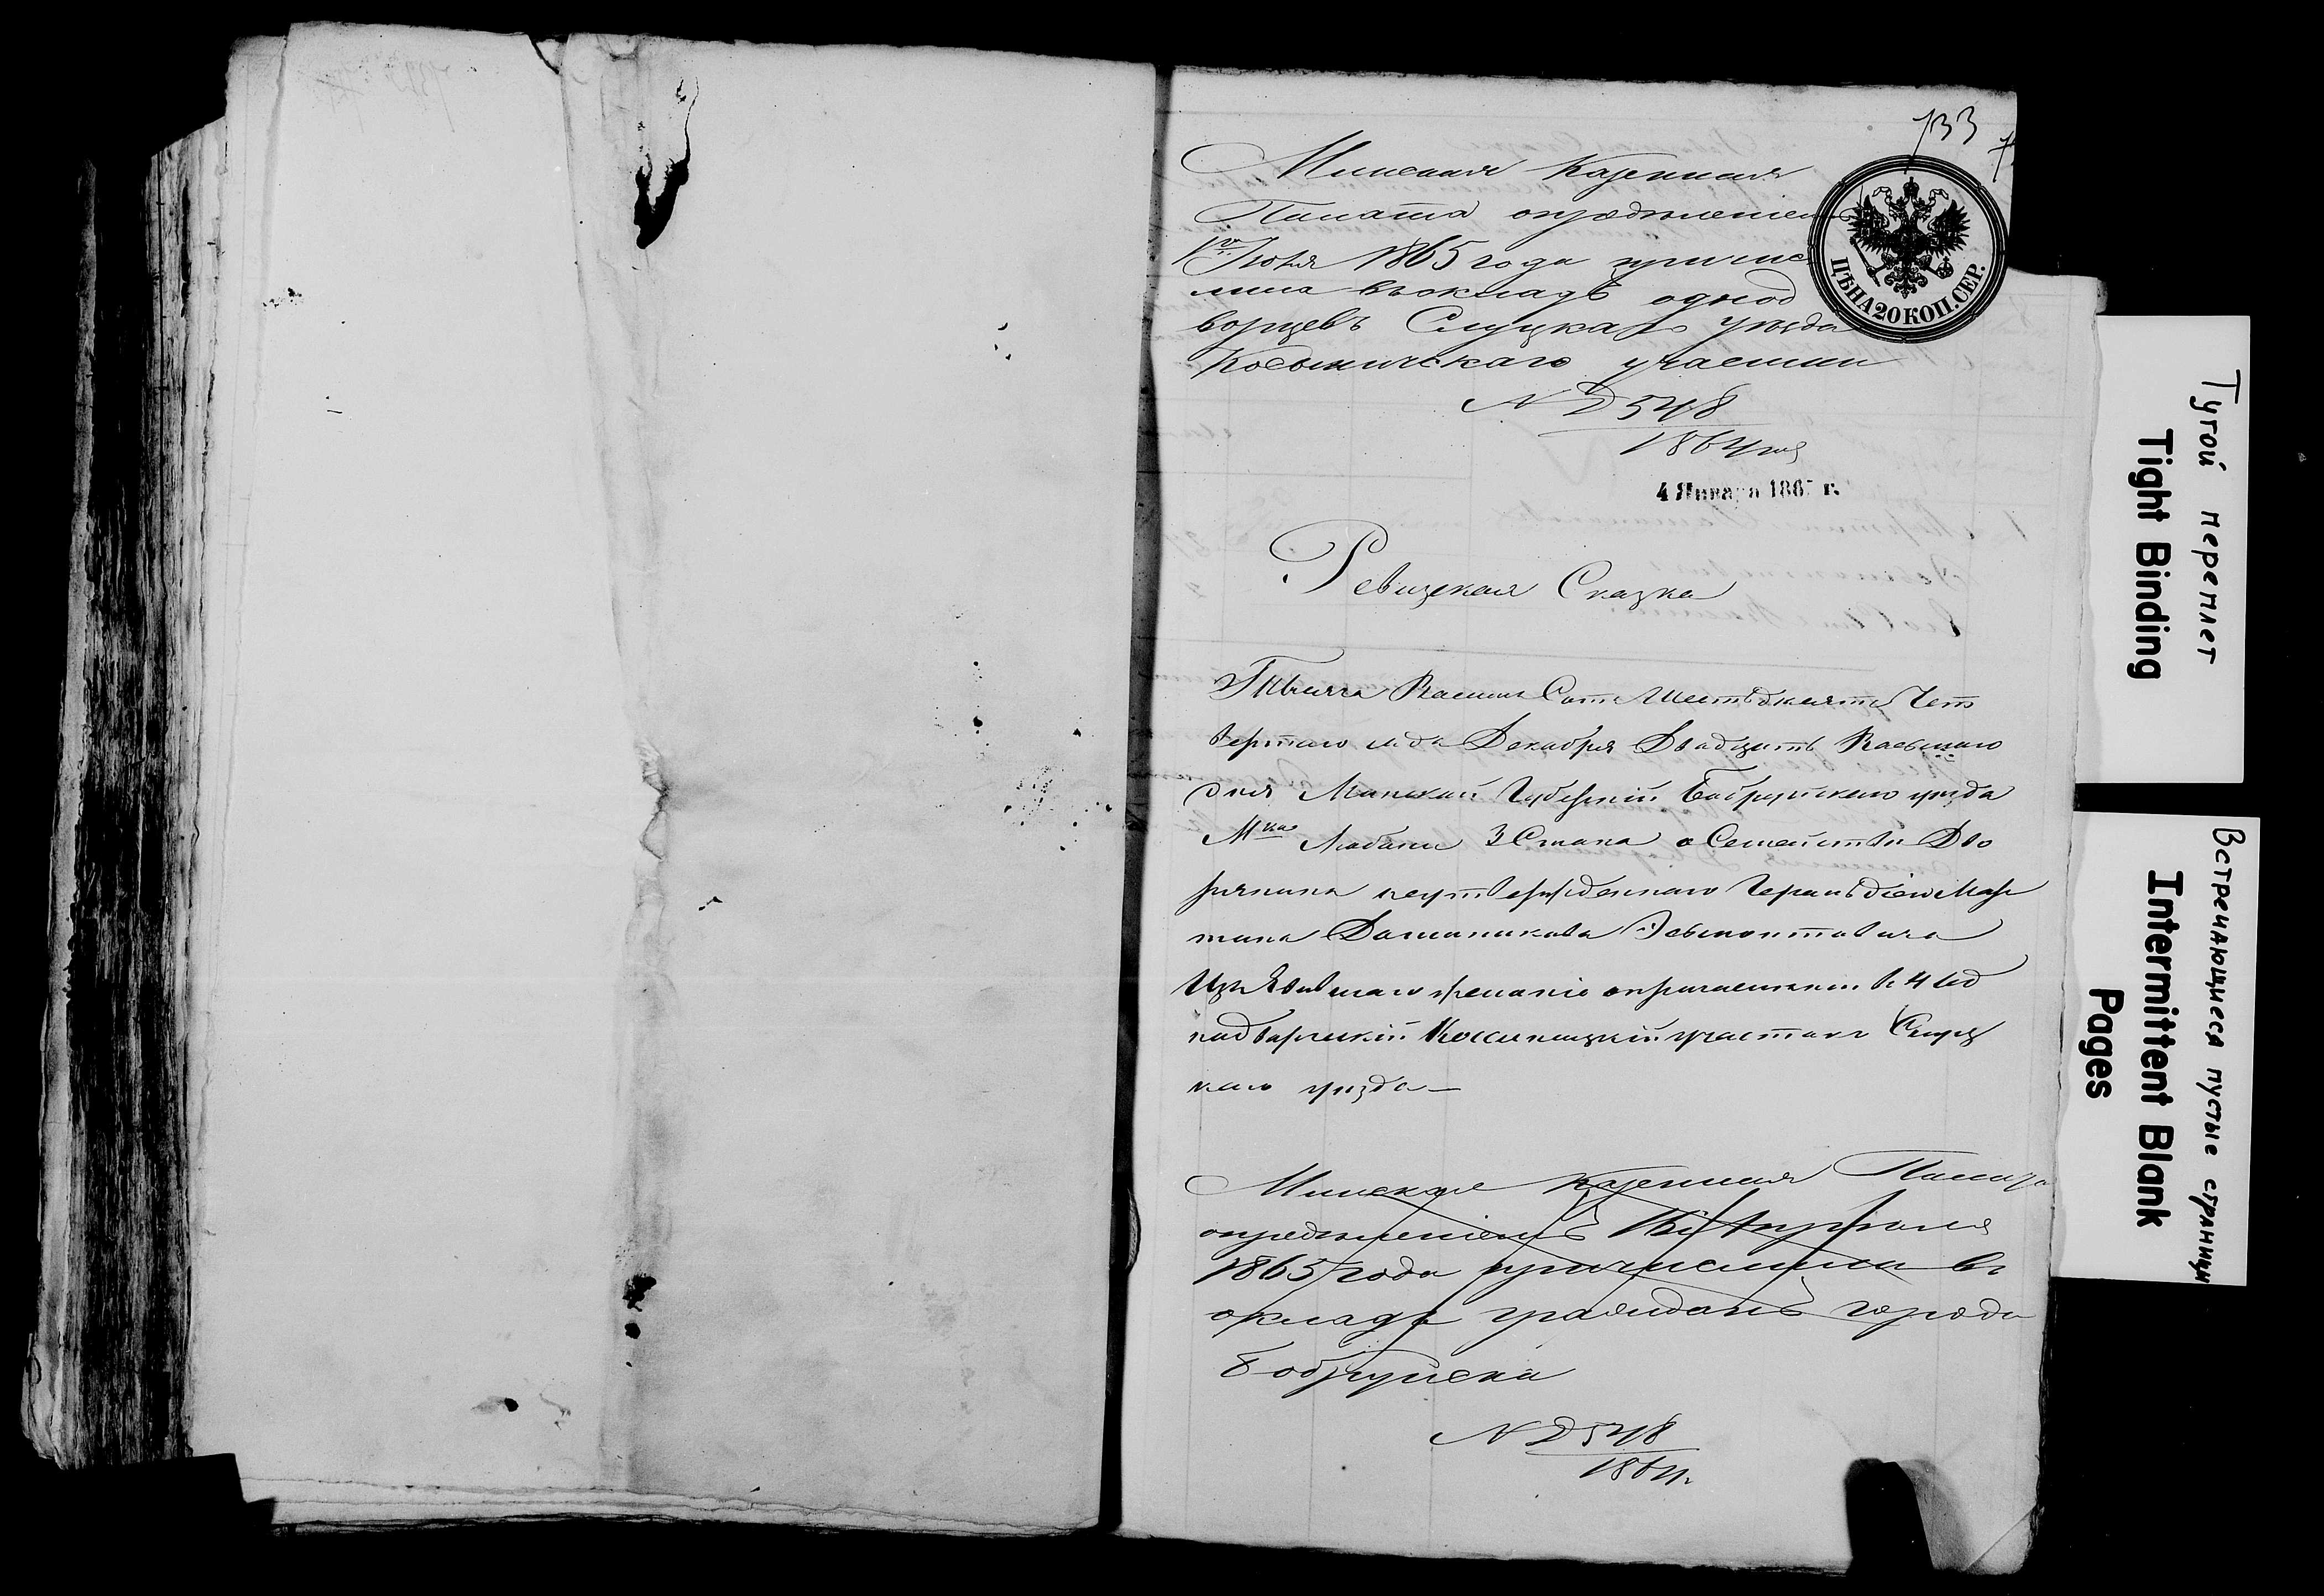 733
Минская Казенная
Палата определениемъ
Июля 1865 года причис
лила въ окладъ однод
ворцевъ Слуцкаго уѣзда
участки
N D 548
1864 год
ЦѢНА 20 КОП. СЕР.
4 Января 186 г.
Ревизская Сказка
Тысяча Восемь Сотъ Шестьдесятъ Чет
вертаго года Декабря Двадцать Восьмаго
дня Минской Губерніи Бобруйскаго уѣзда
Мка Любани 3 Стана о Семействѣ Дво
рянина неутвержденнаго Герольдіею Мар
тина Доминикова
Изъявившаго желаніе въ 4 Од
нодворческій участокъ Слуц
каго уѣзда
Минская Казенная Палата
опредѣленіемъ
1865 года причислила въ
окладъ гражданъ города
Бобруйска
N D 548
1864 г.
Тугой переплет
Tight Binding
Встречающиеся пустые страницы
Intermittent Blank
Pages